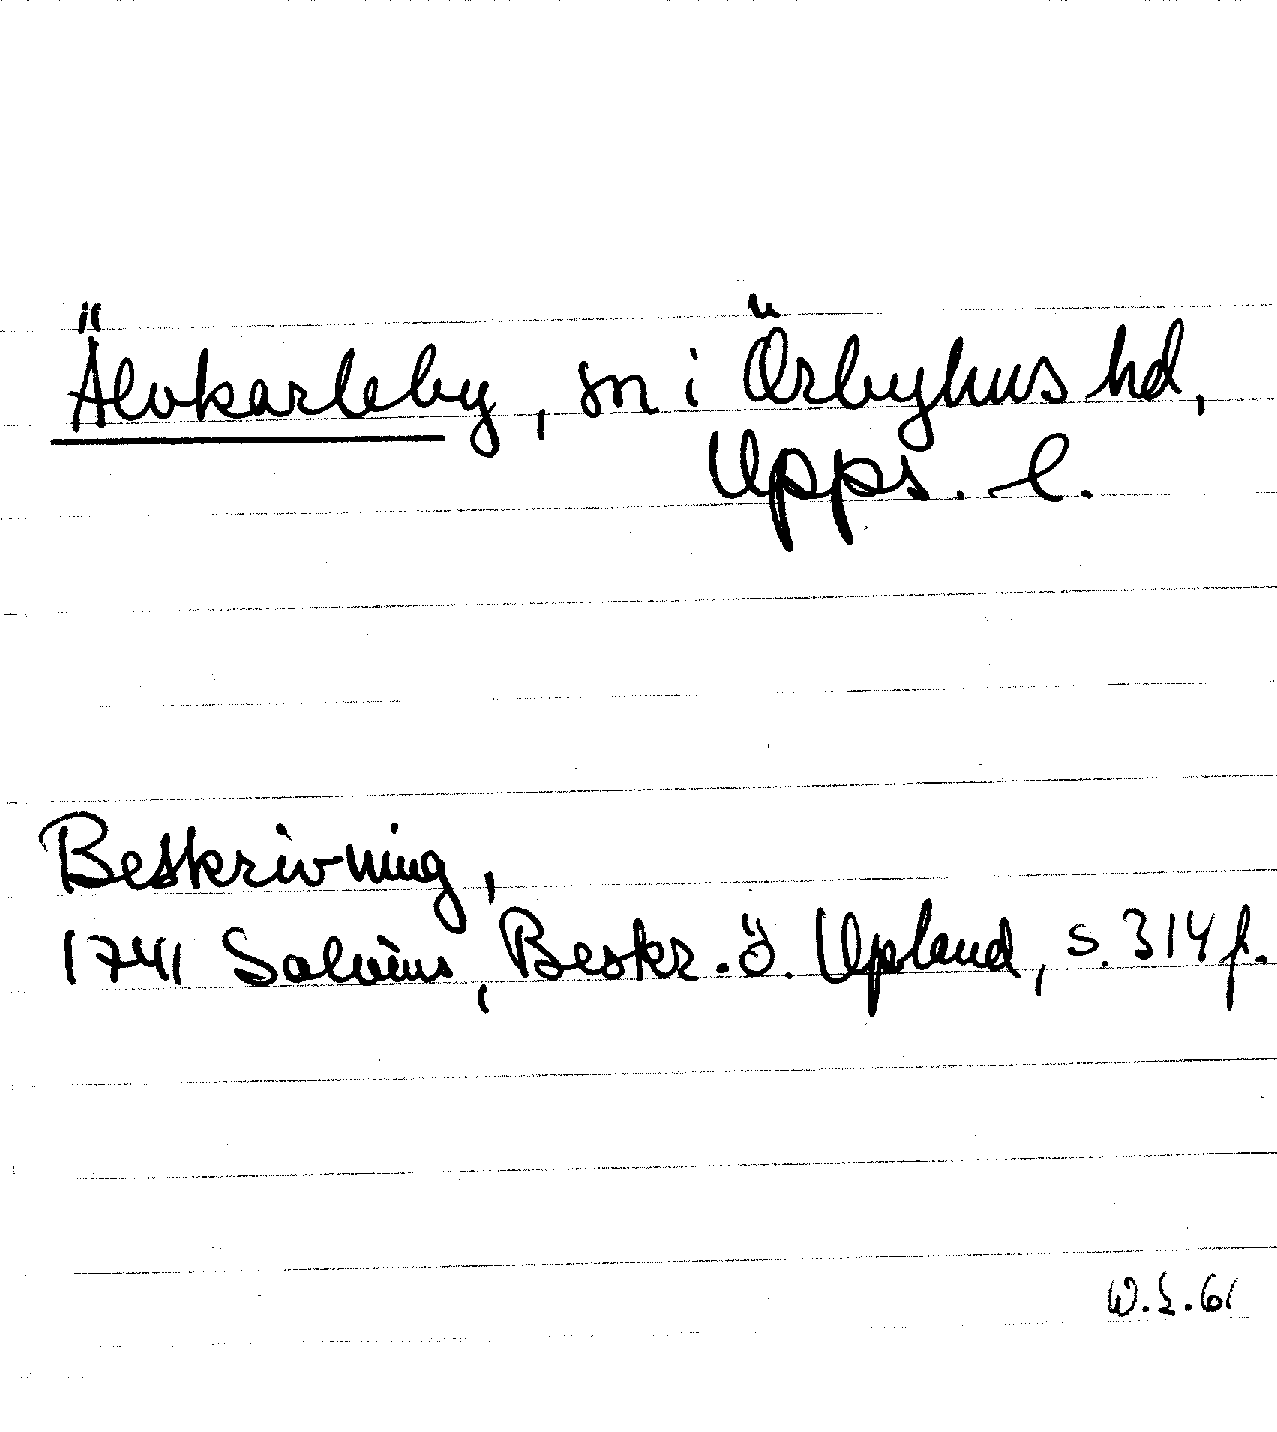 Älvkarleby, sn i Örbyhus hd,
Upps. l.
Beskrivning,
1741 Salvius, Beskr. ö. Upland, s. 314 f.
W.L.61